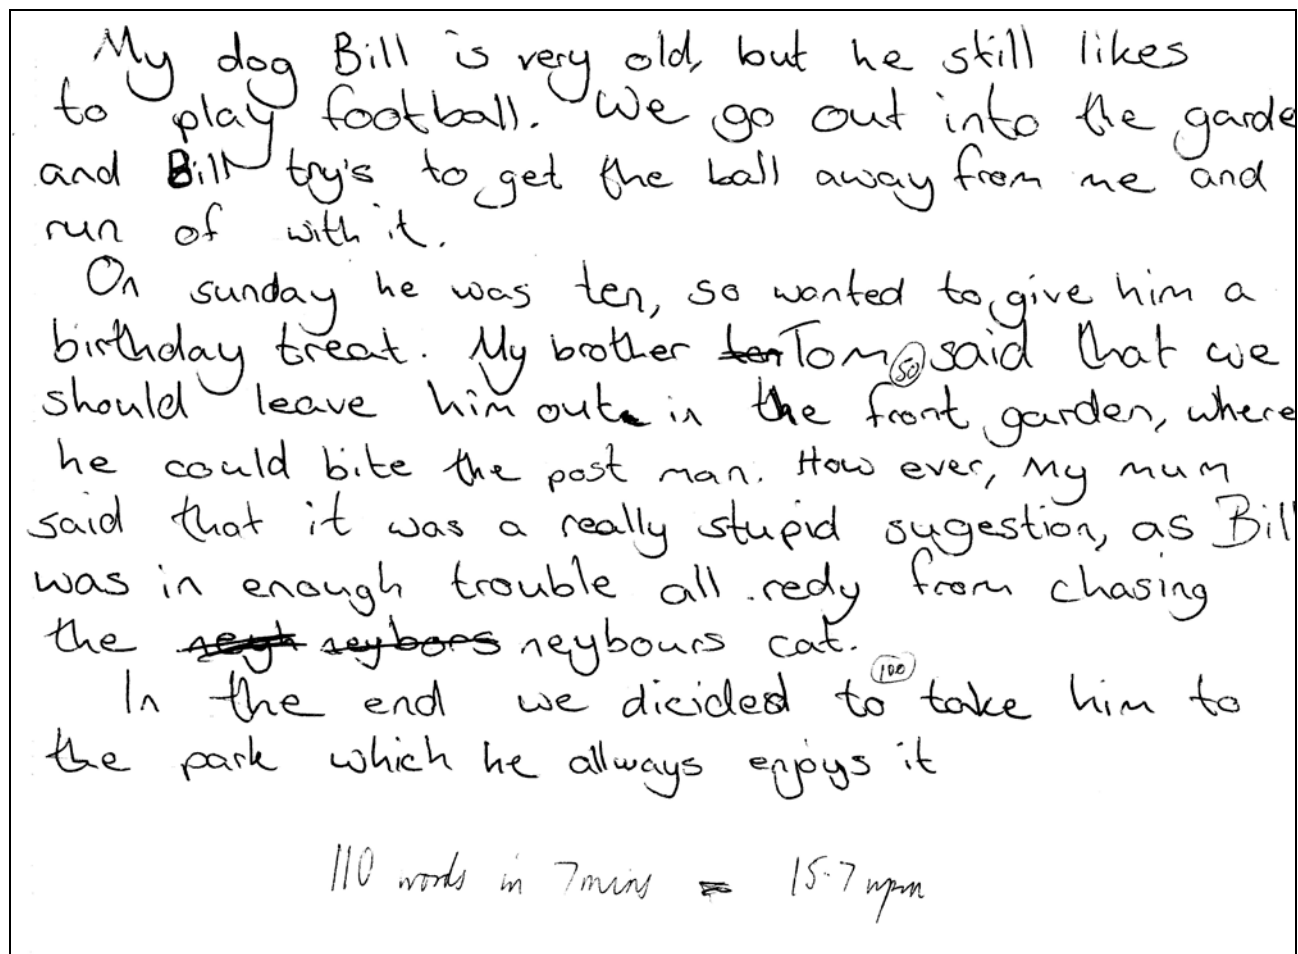 My dog Bill is very old, but he still likes
to play football. We go out into the garde
and Bill try's to get the ball away from me and
run of with it.
On sunday he was ten, so wanted to give him a
birthday treat. My brother ten Tom 50 said that we
should leave him out in the front garden, where
he could bite the post man. How ever, my mum
said that it was a really stupid sugestion, as Bill
was in enough trouble all redy from chasing
the neygh neybors neybours cat.
100
In the end we dicided to take him to
the park which he allways enjoys it
110 words in 7mins = 15.7 wpm